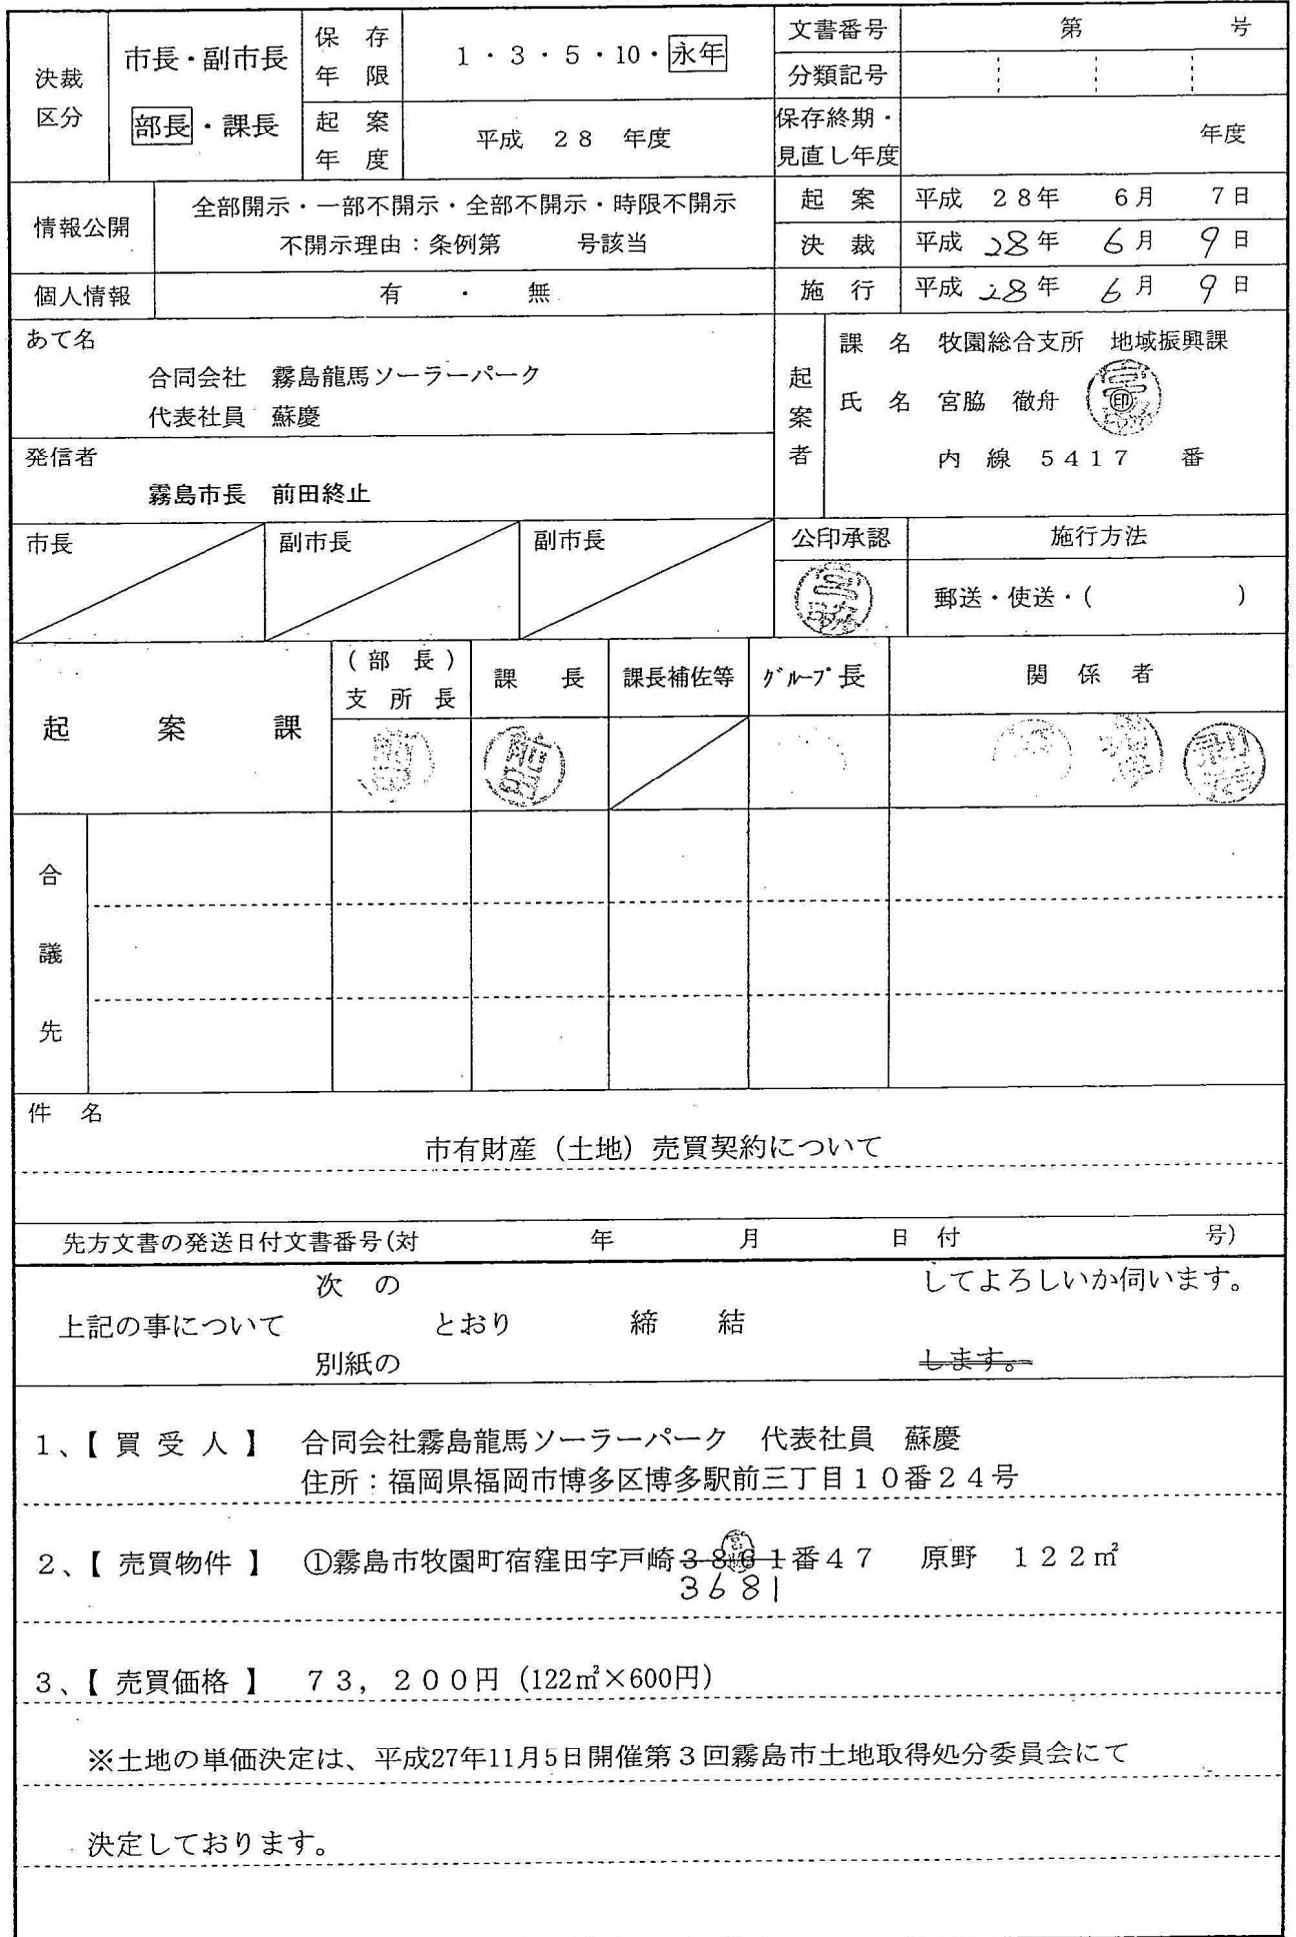 決裁区分
市長・副市長
部長・課長
保存年限
1・3・5・10・永年
起案年度
平成 28 年度
文書番号 第 号
分類記号
保存終期・見直し年度 年度
情報公開
全部開示・一部不開示・全部不開示・時限不開示
不開示理由：条例第 号該当
個人情報
有 ・ 無
起案 平成 28年 6月 7日
決裁 平成 28年 6月 9日
施行 平成 28年 6月 9日
あて名
合同会社 霧島龍馬ソーラーパーク
代表社員 蘇慶
発信者
霧島市長 前田終止
起案者
課名 牧園総合支所 地域振興課
氏名 宮脇 徹舟 印
内線 5417 番
市長
副市長
副市長
公印承認
施行方法
宮脇
郵送・使送・( )
起案課
(部長)
支所長
課長
課長補佐等
グループ長
関係者
合議先
件名
市有財産（土地）売買契約について
先方文書の発送日付文書番号(対 年 月 日付 号)
次の してよろしいか伺います。
上記の事について とおり 締結
別紙の します。
1、【買受人】 合同会社霧島龍馬ソーラーパーク 代表社員 蘇慶
住所：福岡県福岡市博多区博多駅前三丁目10番24号
2、【売買物件】 ①霧島市牧園町宿窪田字戸崎3861番47 原野 122㎡
3681
3、【売買価格】 73，200円（122㎡×600円）
※土地の単価決定は、平成27年11月5日開催第3回霧島市土地取得処分委員会にて
決定しております。